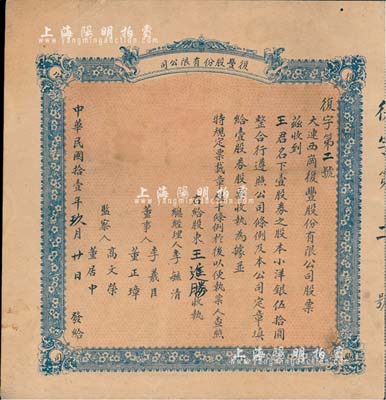 上海陽明拍賣
www.yangmingauction.com
司公限有份股豐復
復字第二號
大連西崗復豐股份有限公司股票
茲收到
王君名下壹股券之股本小洋銀伍拾圓
整合行遵照公司條例及本公司定章填
給壹股券股票收執為據並
特規定票載章程十條例於後以便執票人查照
右給股東王進勝收執
總經理人李維清
董事人 李義臣
董正璋
監察人 高文榮
董居中
中華民國拾壹年玖月廿日發給
上海陽明拍賣
www.yangmingauction.com